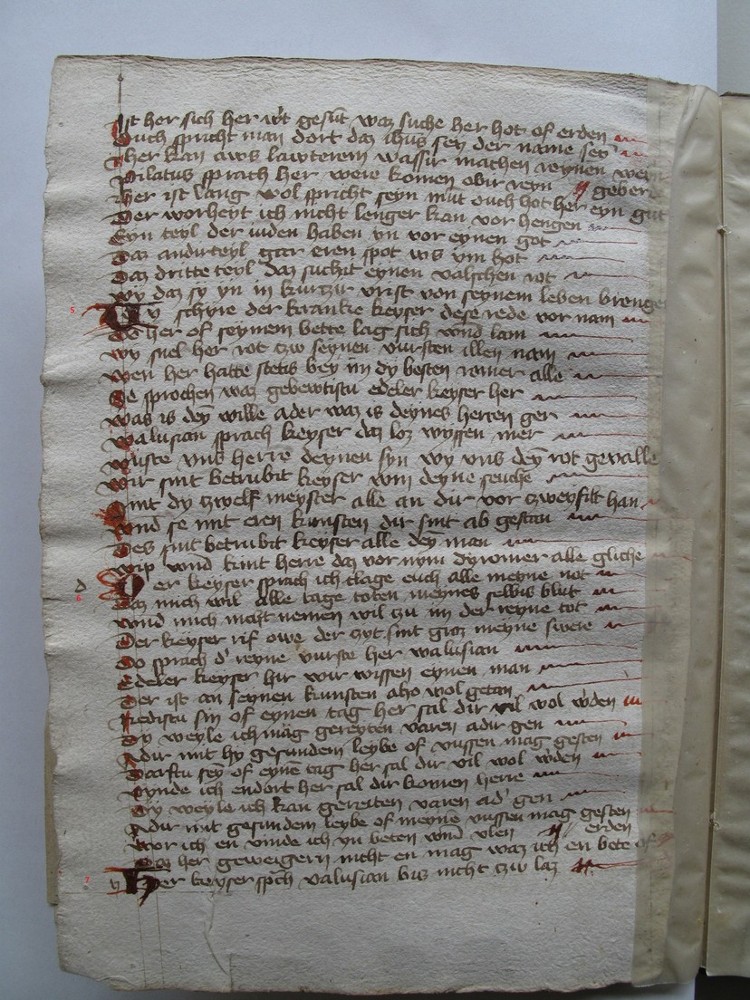 Ist her sich her wt gesut waz suche her hot of erden
Ouch spricht man dort daz ihus sey der name sey
Her kan aws lawterem wassir machen reynen wein
Pilatus sprach her were komen obir reyn
Her ist lang wol spricht seyn mut ouch hot her eyn gut geberde
Der worheyt ich nicht lenger kan vor hengen
Eyn teyl der iuden haben yn vor eynen got
Daz andirteyl gar eren spot ws ym hot
Daz dritte teyl daz suchit eynen valschen rot
Wy daz sy yn in kurtzir vrist von seynem leben brenge
Dy schyre der kranke keyser dese rede vor nam
Do her of seynem bette lag sich wnd lam
Wy snel her rot czw seynen vursten illen nam
Wen her hatte stetis bey im dy besten romer alle
Se sprochen waz gebewtistu edeler keyser her
Was is dey wille ader waz is deynes herten ger
Valusian sprach keyser daz loz wyssen mer
Wuste vns herre deynen syn wy vns dey rot gevalle
Wir sint betrubit keyser vmi deyne seuche
Sint dy czwelf meyster alle an dir vor czweyfilt han
Wnd se mit eren kunsten dir sint ab gestan
Des sint betrubit keyser alle dey man
Wip wnd kint herre daz vor nym dy romer alle gliche
Der keyser sprach ich clage euch alle meyne not
Daz mich wil alle tage toten meynes selbis blut
Wnd mich nicht nemen wil zu im der reyne tot
Der keyser rif owe der czyt sint groz meyne swere
Do sprach d' reyne vurste her valusian
Edeler keyser hir wir wissen eynen man
Der ist an seynen kunsten also wol getan
Redistu sin of eynen tag her sal dir vil wol wden
Dy weyle ich mag gereyten varen adir gen
Adir mit hy gesundem leybe of vussen mag gesten
Darftu sey of eyne tag her sal dir vil wol wden
Vynde ich endort her sal dir komen herre
Dy weyle ich kan gereiten varen ad' gen
Adir mit gesundem leybe of meyne vussen mag gesten
Wor ich en vinde ich yn beten wnd vlen
Daz her geweigern nicht en mag waz ich en bete of erden
Her keyser spch valusian biz nicht czw laz